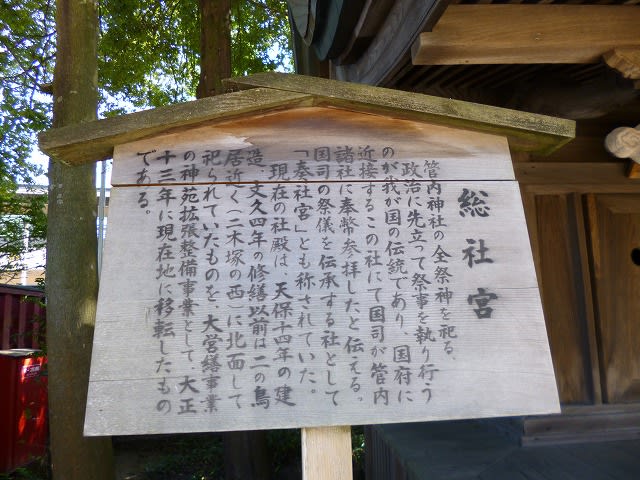 総社宮
管内神社の全祭神を祀る。
政治に先立つて祭事を執り行う
のが我が国の伝統であり、国府に
近接するこの社にて国司が管内
諸社に奉幣参拝したと伝える。
国司の祭儀を伝承する社として
「奏社宮」とも称されていた。
現在の社殿は、天保十四年の建
造、文久四年の修繕以前は二の鳥
居近く(二木塚の西)に北面して
祀られていたものを、大営繕事業
の神苑拡張整備事業として、大正
十三年に現在地に移転したもの
である。